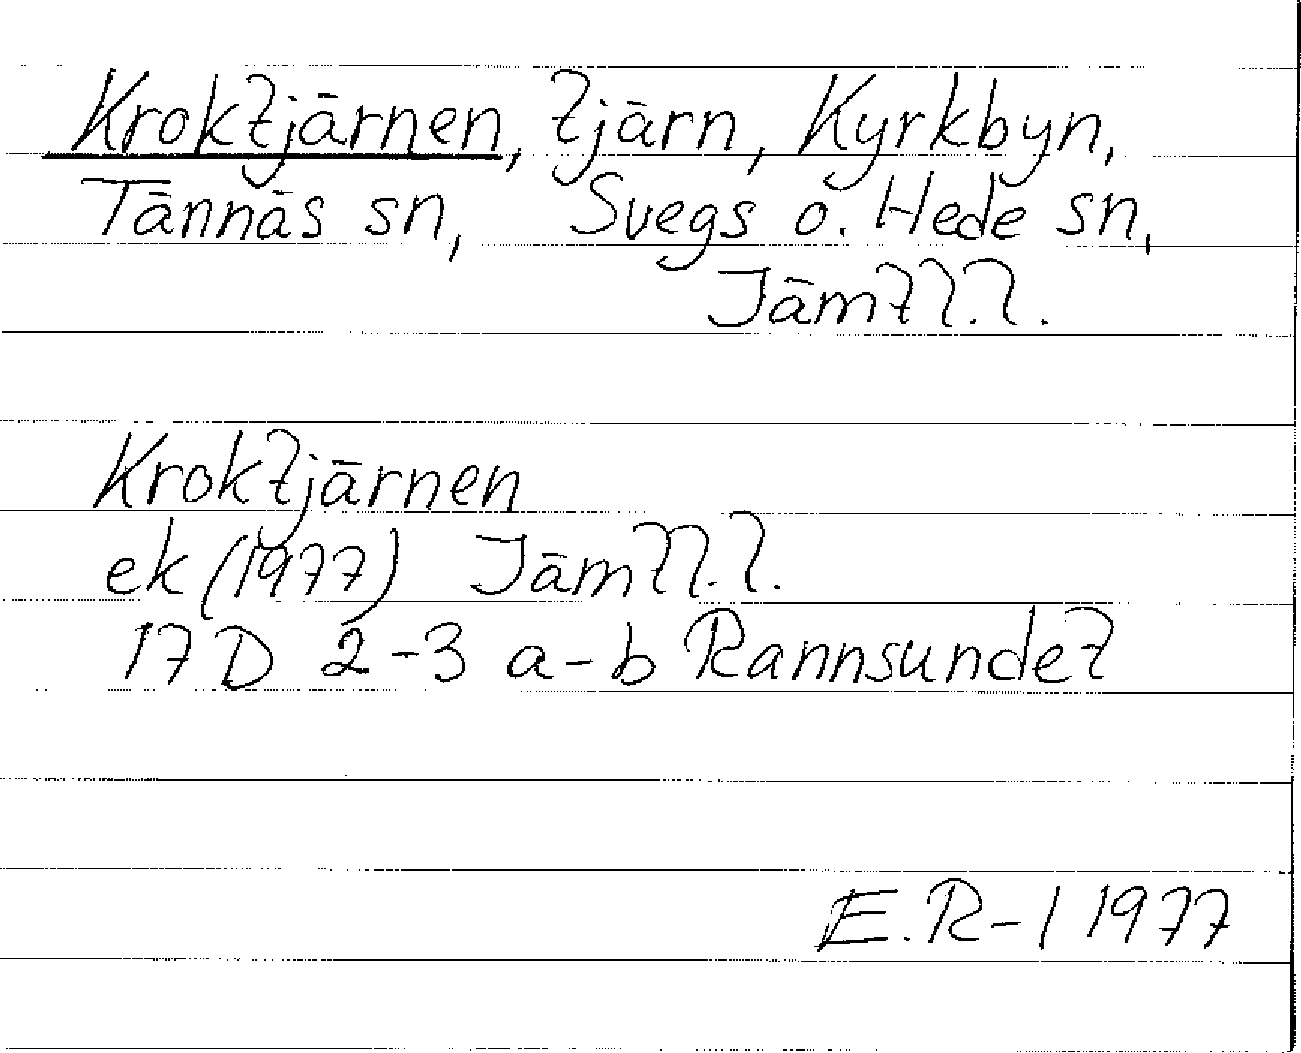 Kroktjärnen, tjärn, Kyrkbyn,
Tännäs sn, Svegs o. Hede sn,
Jämtl.l.
Kroktjärnen
ek (1977) Jämtl.l.
17 D 2-3 a-b Rannsundet
E.R-l 1977